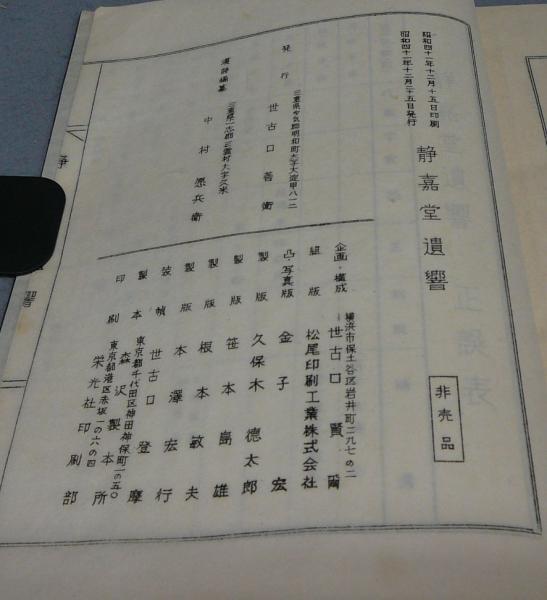 昭和四十二年十二月十五日印刷
昭和四十二年十二月二十五日発行
静嘉堂遺響
非売品
発行
三重県多気郡明和町大字大淀甲八一二
世古口善衛
漢詩編纂
三重県一志郡三雲村大字久米
中村悪兵衛
企画・構成
横浜市保土谷区岩井町二九七の二
世古口賢爾
組版 松尾印刷工業株式会社
凸・写真版 金子宏
製版 久保木徳太郎
製版 笹本島雄
製版 根本敏夫
製版 本澤宏行
装幀 世古口登摩
製本
東京都千代田区神田神保町一の五〇
森沢製本所
印刷
東京都港区赤坂一の六の四
栄光社印刷部